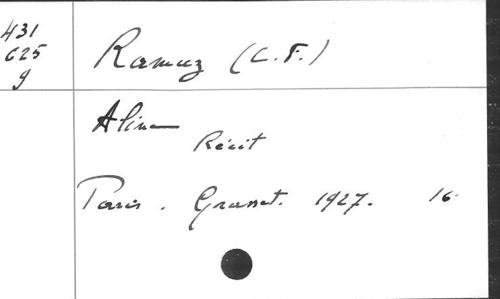 431
C25
g
Ramuz (C. F.)
Aline
Récit
Paris. Grasset. 1927. 16